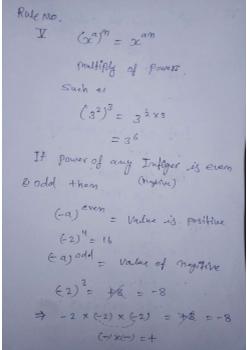 Rule No.
V (x^a)^n = x^an
multiply of powers.
Such as
(3^2)^3 = 3^2×3
= 3^6
If power of any Integer is even
& odd then (negative)
(-a)^even = Value is positive
(-2)^4 = 16
(-a)^odd = value of negitive
(-2)^3 = -8
⇒ -2 × (-2) × (-2) = -8
(-)×(-) = +